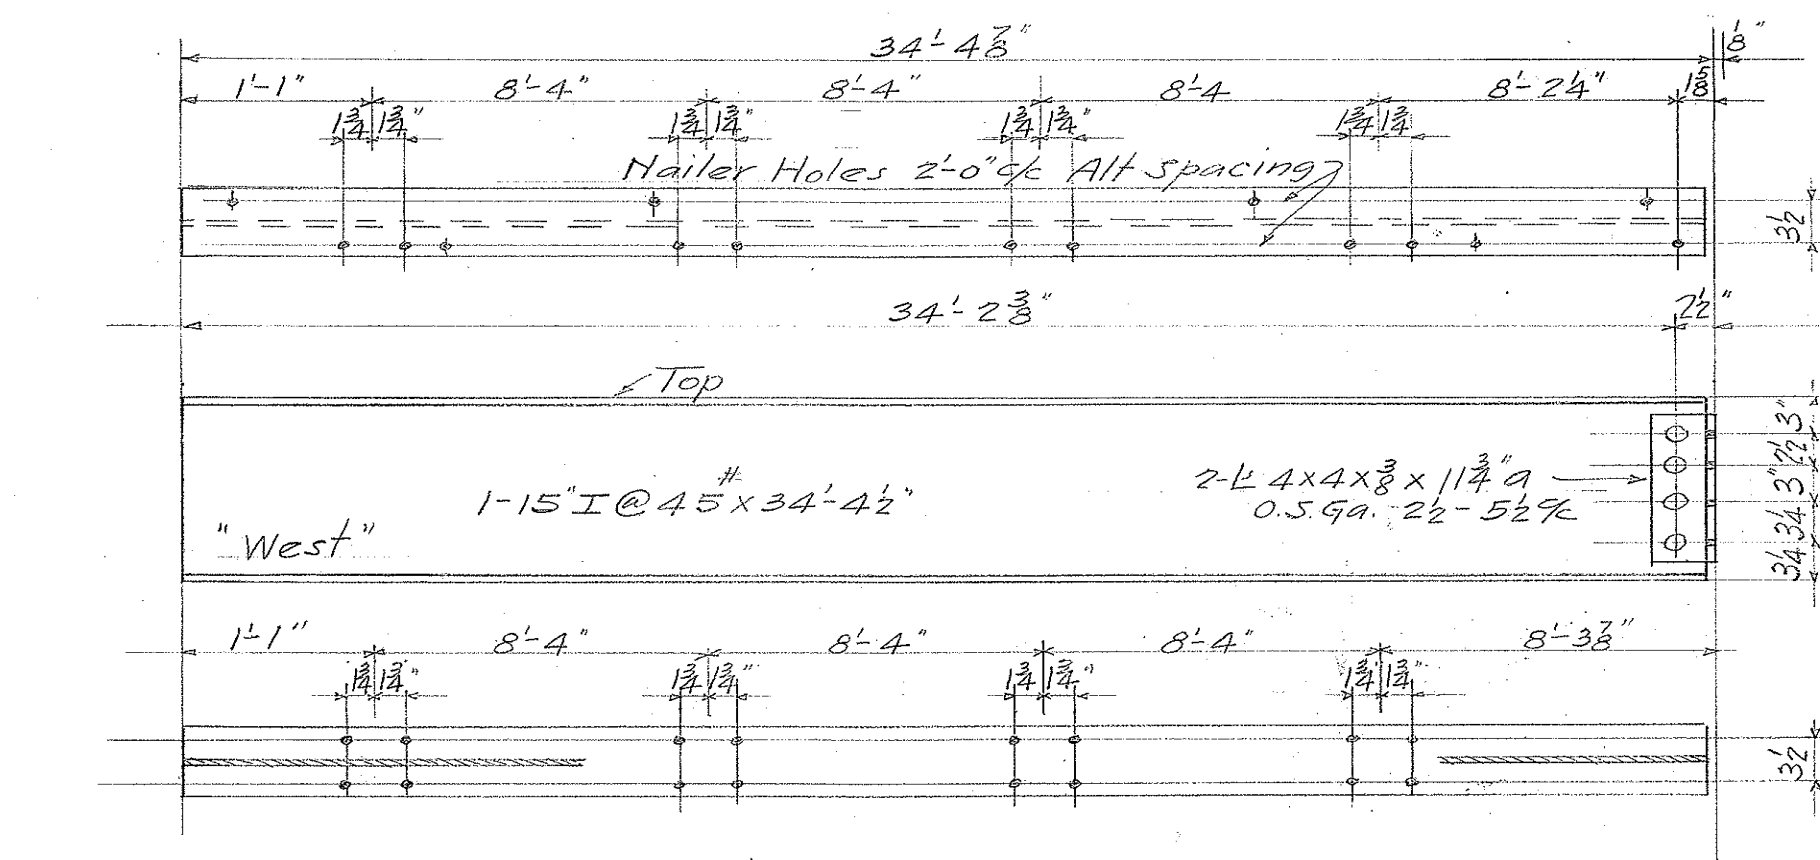 34'-4 7/8" 1/8"
1'-1" 8'-4" 8'-4" 8'-4 8'-2 1/4" 1 5/8
1 3/4 1 3/4" 1 3/4 1 3/4" 1 3/4 1 3/4" 1 3/4 1 3/4
Nailer Holes 2'-0" c/c Alt spacing
3 1/2
34'-2 3/8" 2 1/2"
Top
3"
2 1/2
3"
3 1/4
3 1/4
1-15" I @ 45# x 34'-4 1/2"
2-L 4x4x 3/8 x 11 3/4" a
O.S.Ga. 2 1/2 - 5 1/2 c/c
"West"
1'-1" 8'-4" 8'-4" 8'-4" 8'-3 7/8"
1 3/4 1 3/4" 1 3/4 1 3/4" 1 3/4 1 3/4" 1 3/4 1 3/4"
3 1/2